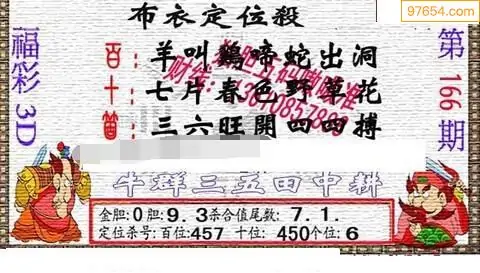 97654.com
布衣定位殺
福彩3D
第166期
百: 羊叫鷄啼蛇出洞
十: 七片春色野草花
箇: 三六旺開四四搏
牛群三五田中耕
金胆:0胆:9.3杀合值尾数:7.1.
定位杀号:百位:457 十位:450个位:6